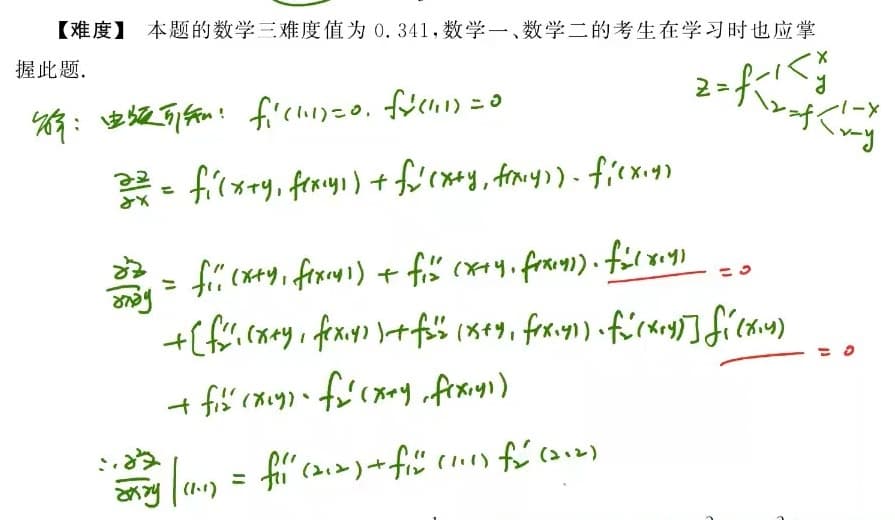 【难度】 本题的数学三难度值为 0.341,数学一、数学二的考生在学习时也应掌
握此题.
z=f<1<x y
2=f<1-x 2-y
解: 由题可知: f₁'(1,1)=0, f₂'(1,1)=0
∂z/∂x = f₁'(x+y, f(x,y)) + f₂'(x+y, f(x,y)) · f₁'(x,y)
∂²z/∂x∂y = f₁₁''(x+y, f(x,y)) + f₁₂''(x+y, f(x,y)) · f₂'(x,y) =0
+[f₂₁''(x+y, f(x,y))+f₂₂''(x+y, f(x,y)) · f₂'(x,y)] f₁'(x,y) =0
+ f₁₂''(x,y) · f₂'(x+y, f(x,y))
∴ ∂²z/∂x∂y |(1,1) = f₁₁''(2,2)+f₁₂''(1,1) f₂'(2,2)